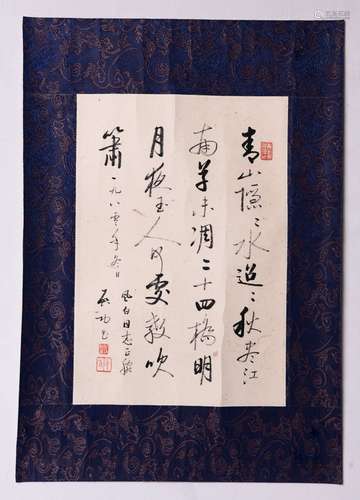 青山隱々水迢々秋盡江
南草未凋二十四橋明
月夜玉人何處教吹
簫 一九八零年冬日
同志正腕
启功书